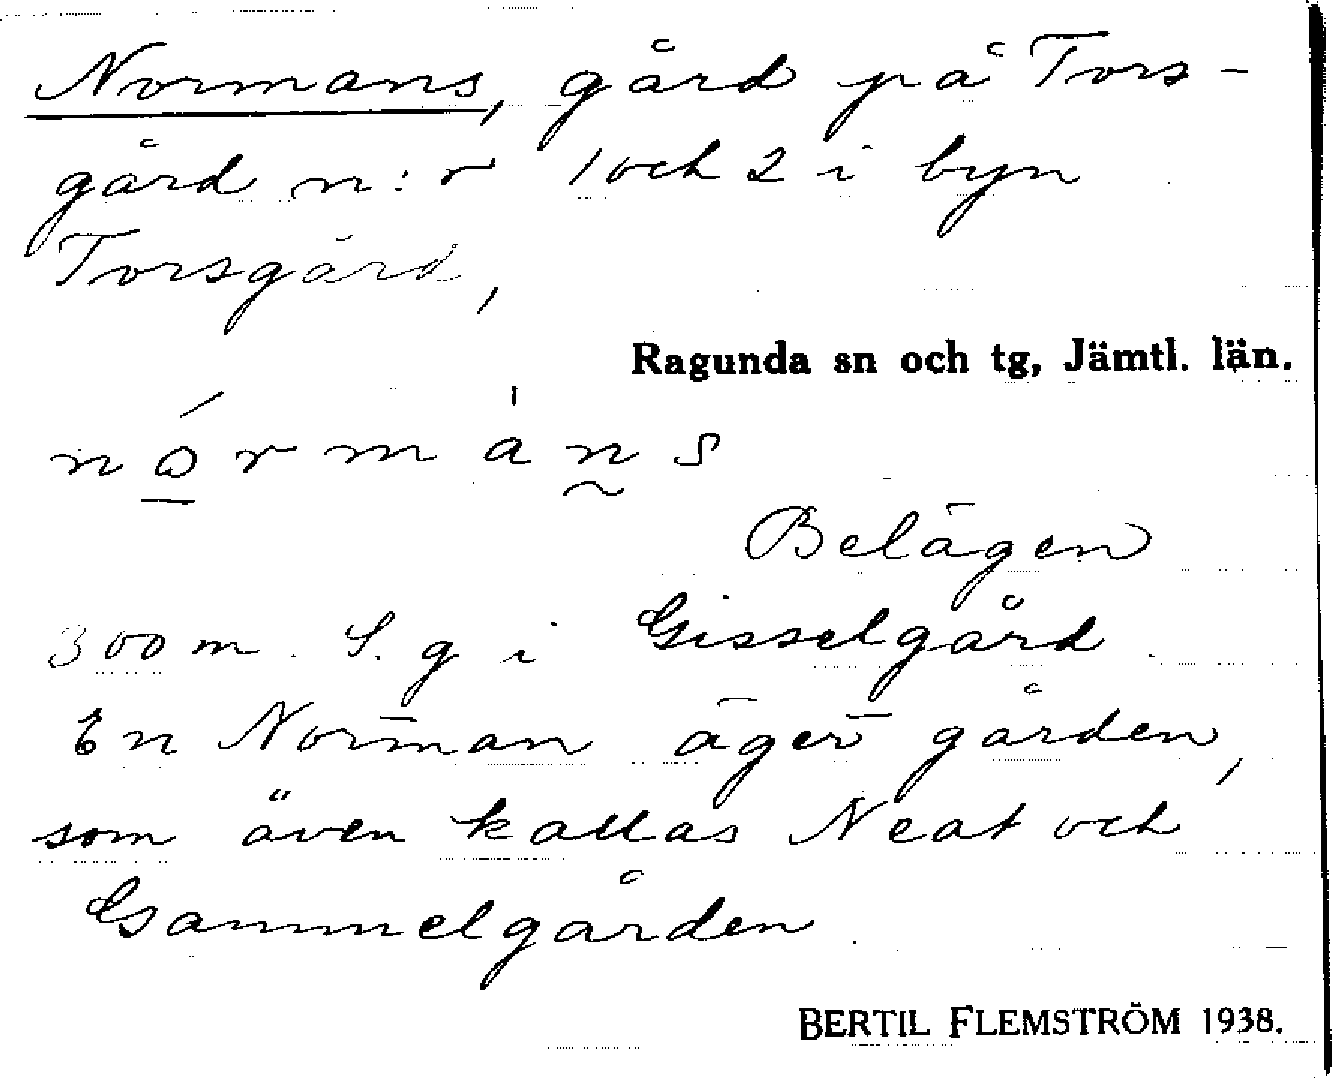 Normans, gård på Tors-
gård n:r 1 och 2 i byn
Torsgård,
Ragunda sn och tg, Jämtl. län.
Belägen
300 m. S. g i Gisselgård.
En Norman äger gården,
som även kallas Neat och
Gammelgården.
BERTIL FLEMSTRÖM 1938.